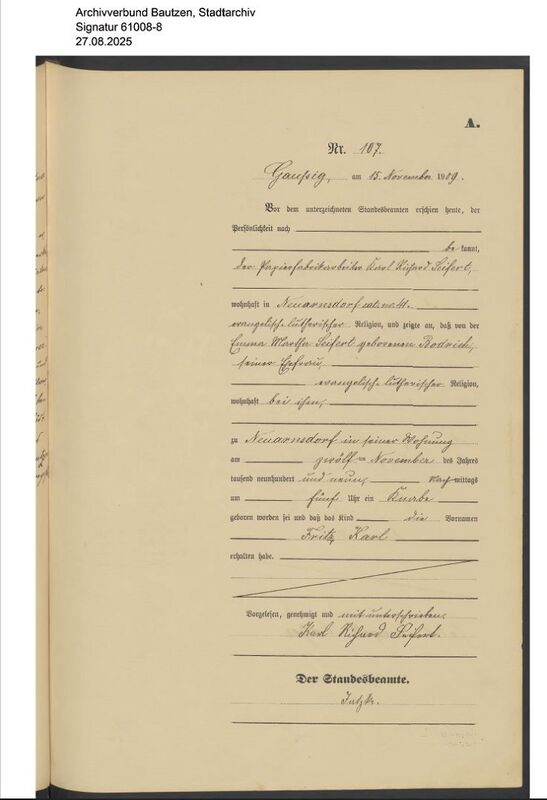 Archivverbund Bautzen, Stadtarchiv
Signatur 61008-8
27.08.2025
A.
Nr. 107.
Gaußig, am 15. November 1909.
Vor dem unterzeichneten Standesbeamten erschien heute, der
Persönlichkeit nach
be kannt,
der Papierfabrikarbeiter Karl Richard Seifert,
wohnhaft in Neuarnsdorf cat. no. 41.
evangelisch-lutherischer Religion, und zeigte an, daß von der
Emma Martha Seifert geborenen Rodrich,
seiner Ehefrau,
evangelisch-lutherischer Religion,
wohnhaft bei ihm,
zu Neuarnsdorf in seiner Wohnung
am zwölften November des Jahres
tausend neunhundert und neun, Nachmittags
um fünf Uhr ein Knabe
geboren worden sei und daß das Kind die Vornamen
Fritz Karl
erhalten habe.
Vorgelesen, genehmigt und mit unterschrieben,
Karl Richard Seifert.
Der Standesbeamte.